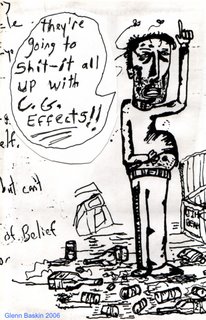 they're
going to
shit-it all
UP with
C.G.
Effects!!
elf.
but can't
of Belief
or
Glenn Baskin 2006